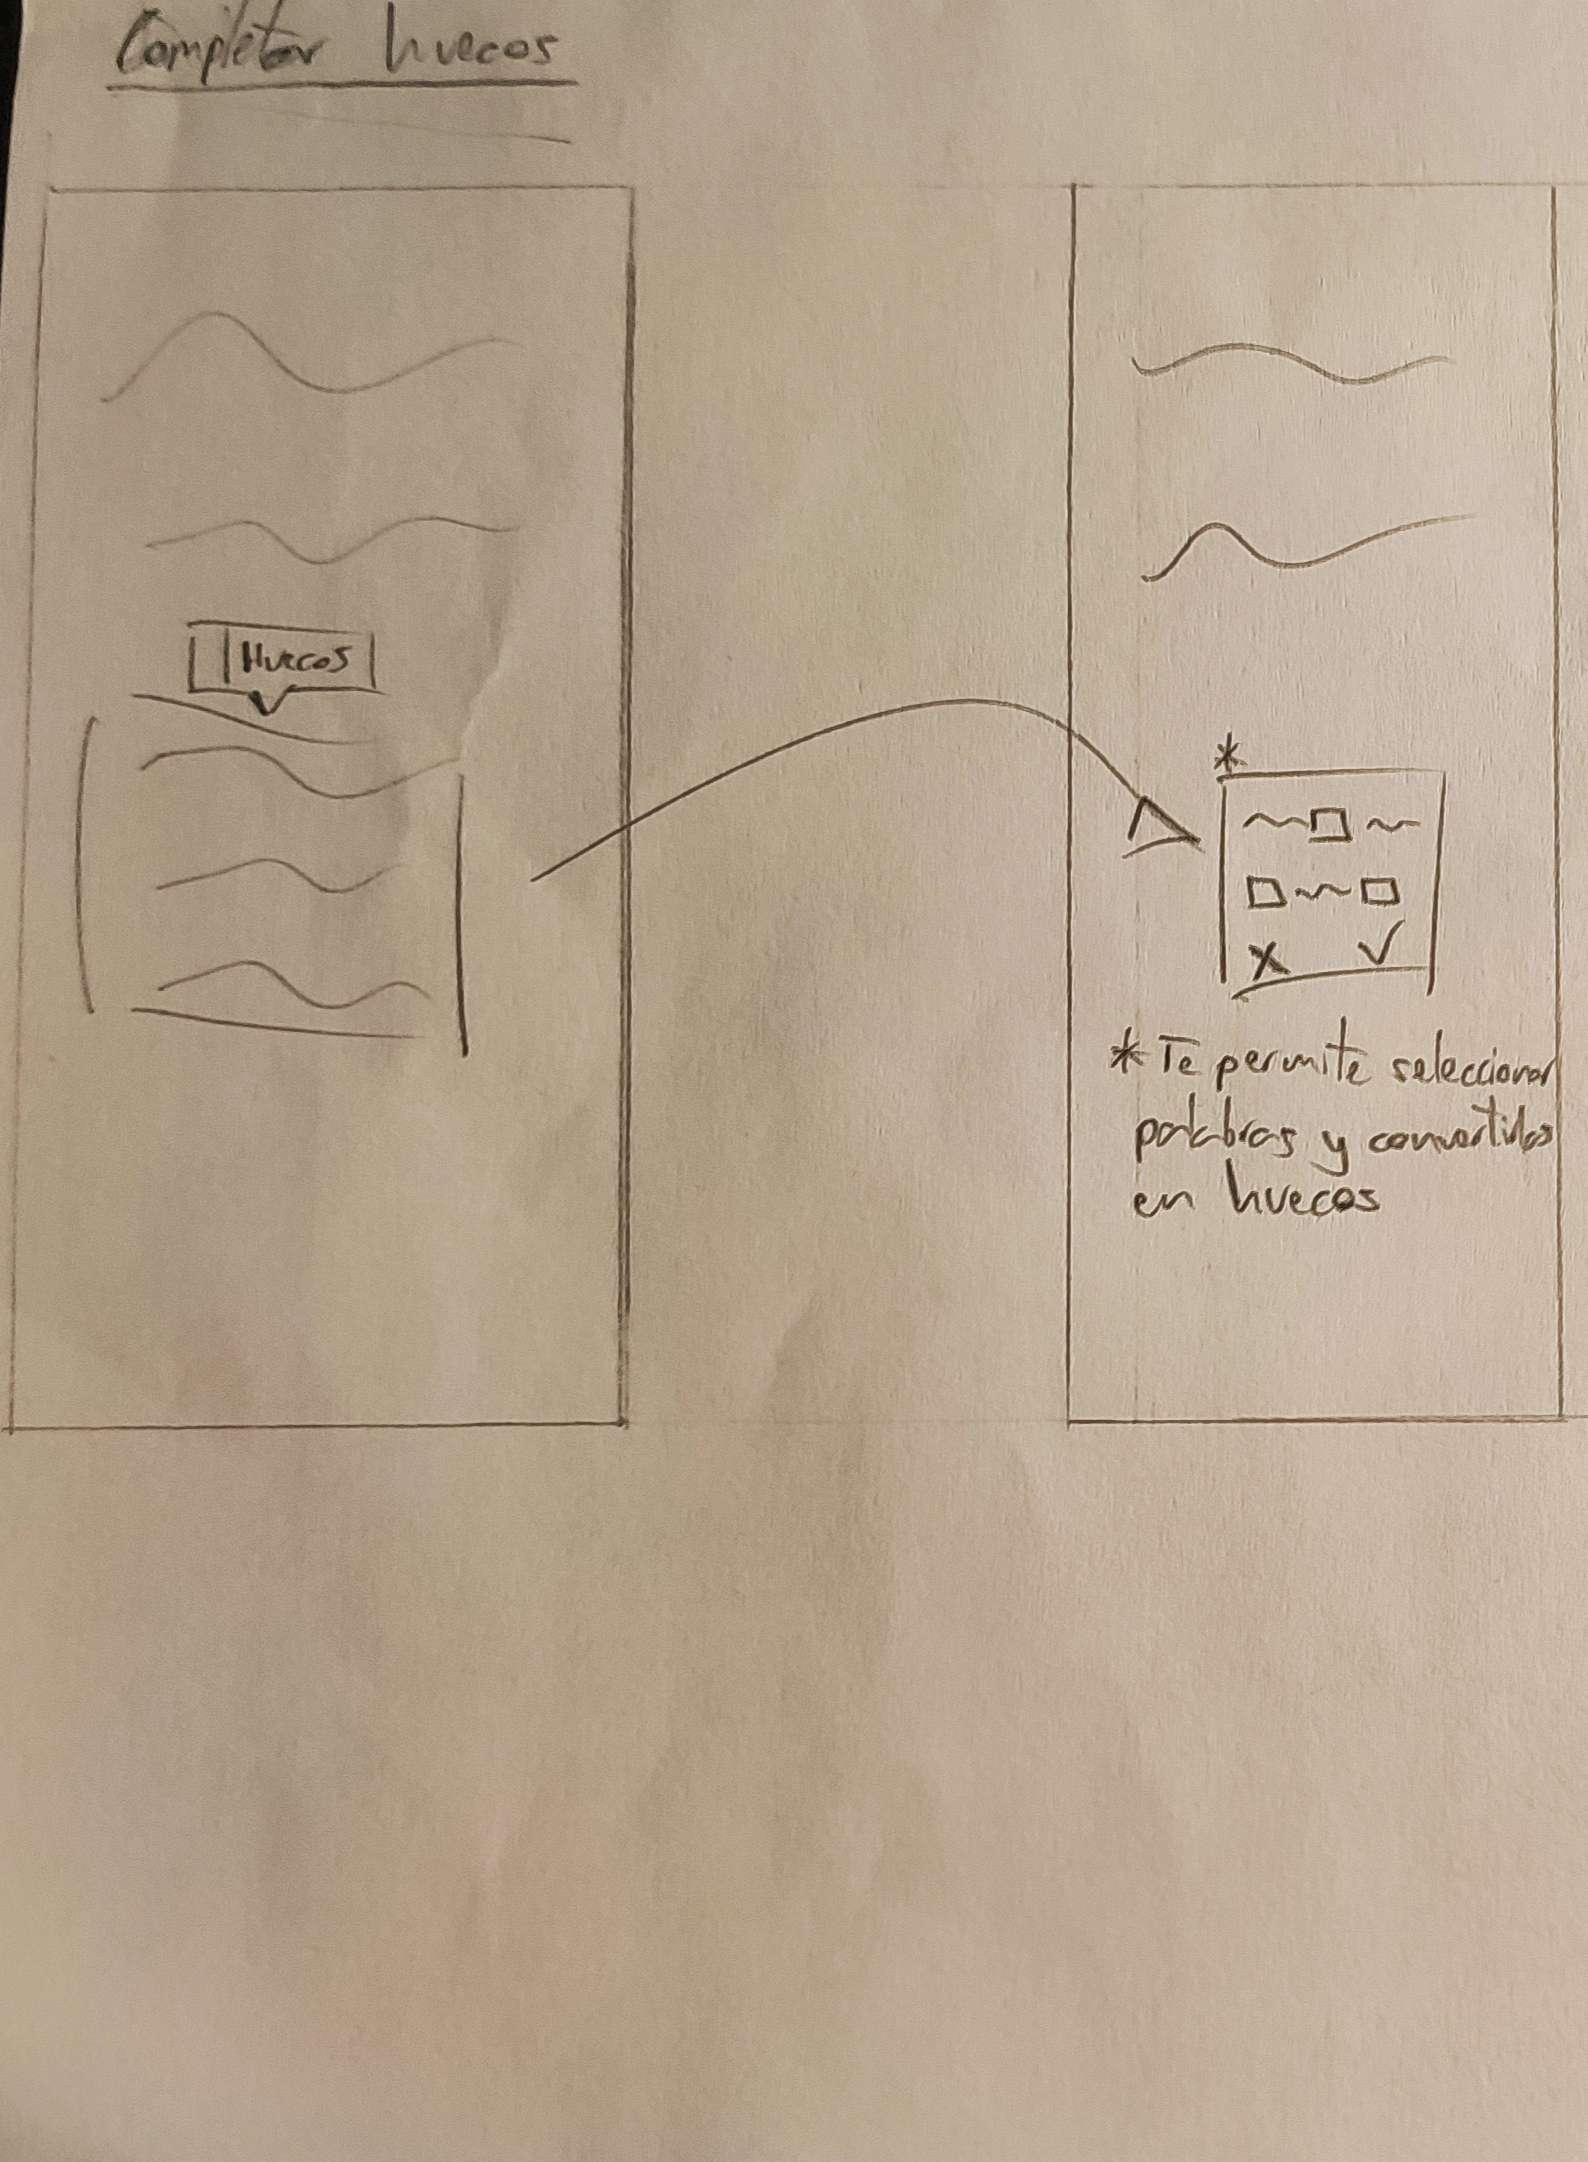 Completar huecos
Huecos
*
X ✓
* Te permite seleccionar
palabras y convertirlas
en huecos